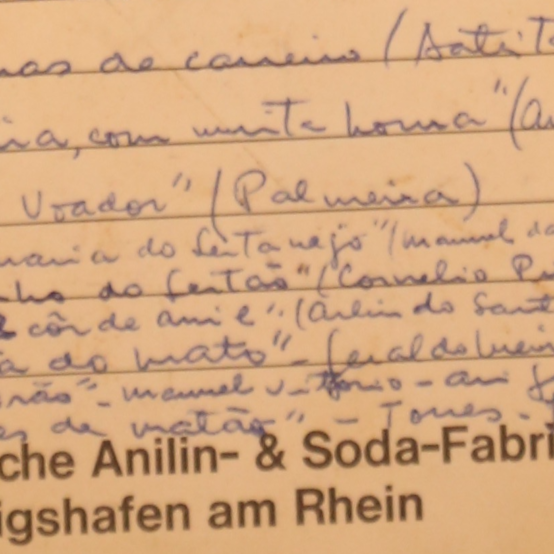 as de carreiro (
ia, com muita honra" (
Voador" (Palmeira)
maria do Sertanejo" (manuel
nho do Sertão" (Cornelio Pi
côr de anil" (Arlindo Sant
a do mato" - Geraldo
- manuel Vittorio - ari
es de matão" - Torres -
che Anilin- & Soda-Fabri
igshafen am Rhein